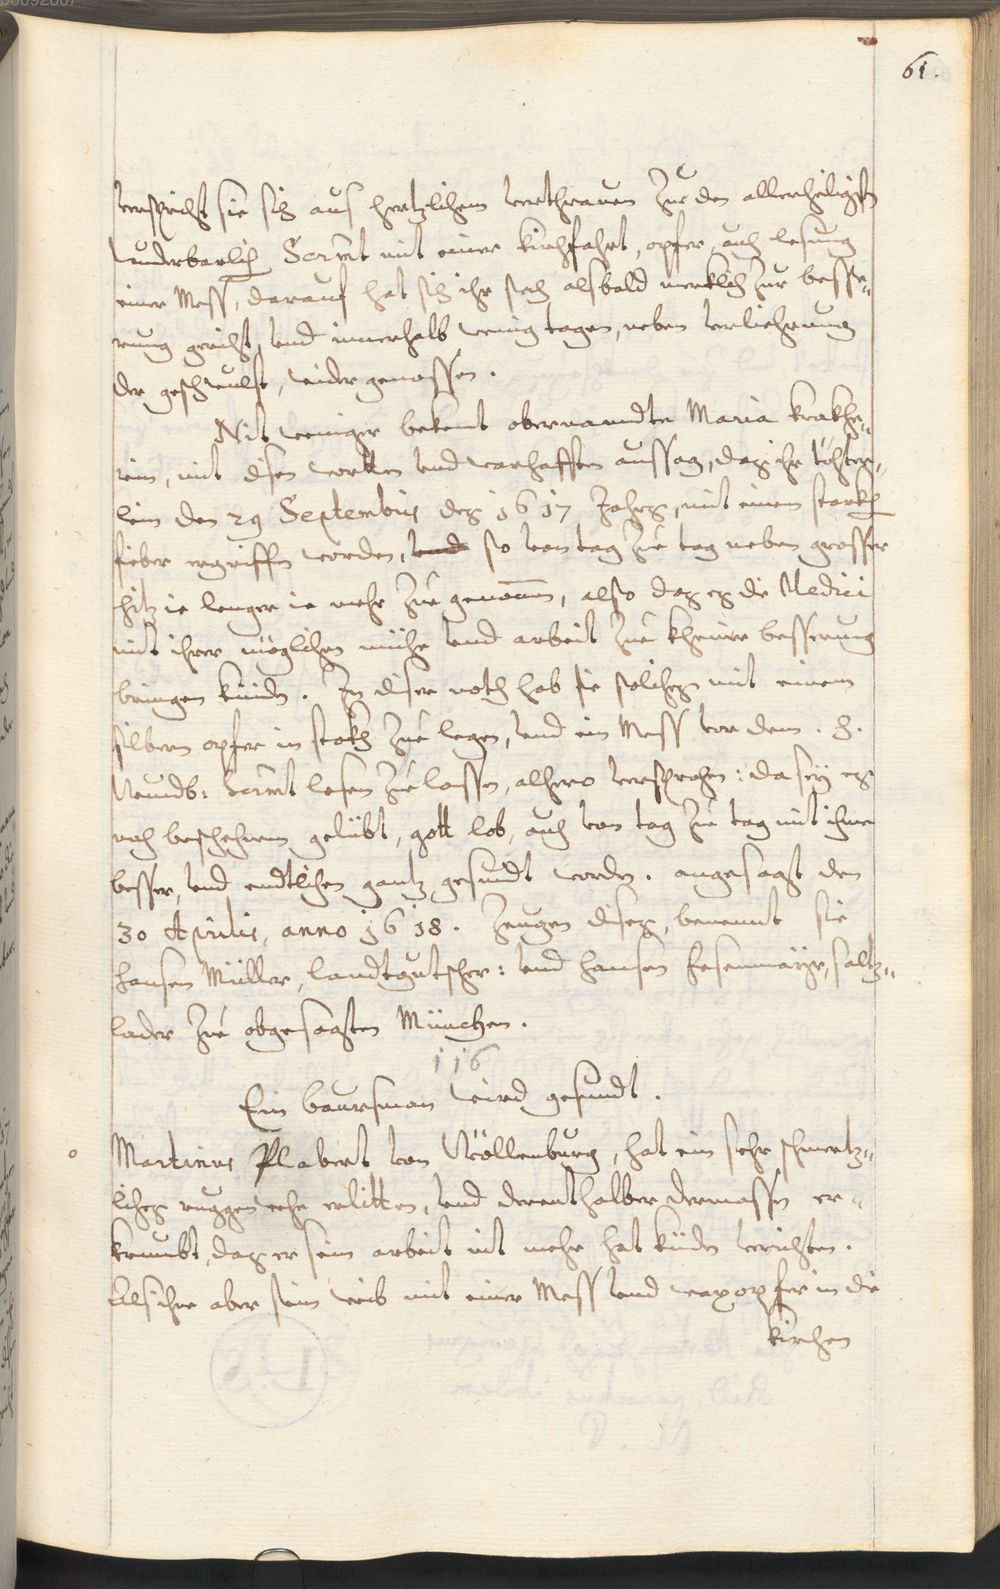 61.
verspricht sie sich aus hertzlichem verthrauen zu den allerheiligisten
wunderbarlich Sacrmt mit einer kirchfahrt, opfer, auch lesung
einer Mess, darauf hat sich ihr sach alsbald mercklich zur besse„
rung gericht, vnd innerhalb wenig tagen, neben verliehrung
der geschwulst, wider genossen.
Nit weniger bekent obernandte Maria krakhe„
rin, mit disen worten vnd warhafften aussag, das ihr töchter„
lein den 29 Septembris des 1617 Jahrs, mit einem starkh
fieber ergriffen worden, vnd so von tag zu tag neben grosser
hitz ie lenger ie mehr zue genomen, also das es die Medici
mit ihrer möglichen mühe vnd arbeit zue kheiner besserung
bringen künden. In diser noth hab sie solches mit einem
silbern opfer in stokh zue legen, vnd ein Mess vor dem .H.
Wundb: Sacrmt lesen zue lassen, alhero versprochen: da sey es
nach beschehenem gelübt, gott lob, auch von tag zu tag mit ihme
besser, vnd endtlichen gantz gesundt worden. angesagt den
30 Aprilis, anno 1618. Zeugen dises, benennt sie
Hansen Müller, landtgutscher: vnd Hansen Esenmayr, saltz„
lader zue obgesagten München.
116
Ein baursman wird gesundt.
Martinus Plabert von Nöllenburg, hat ein sehr schmertz„
liches ruggen wehe erlitten, vnd derenthalber dermassen er„
krumbt, das er sein arbeit nit mehr hat künden verrichten.
Als ihne aber sein weib mit einer Mess vnd wax opfer in die
kirchen